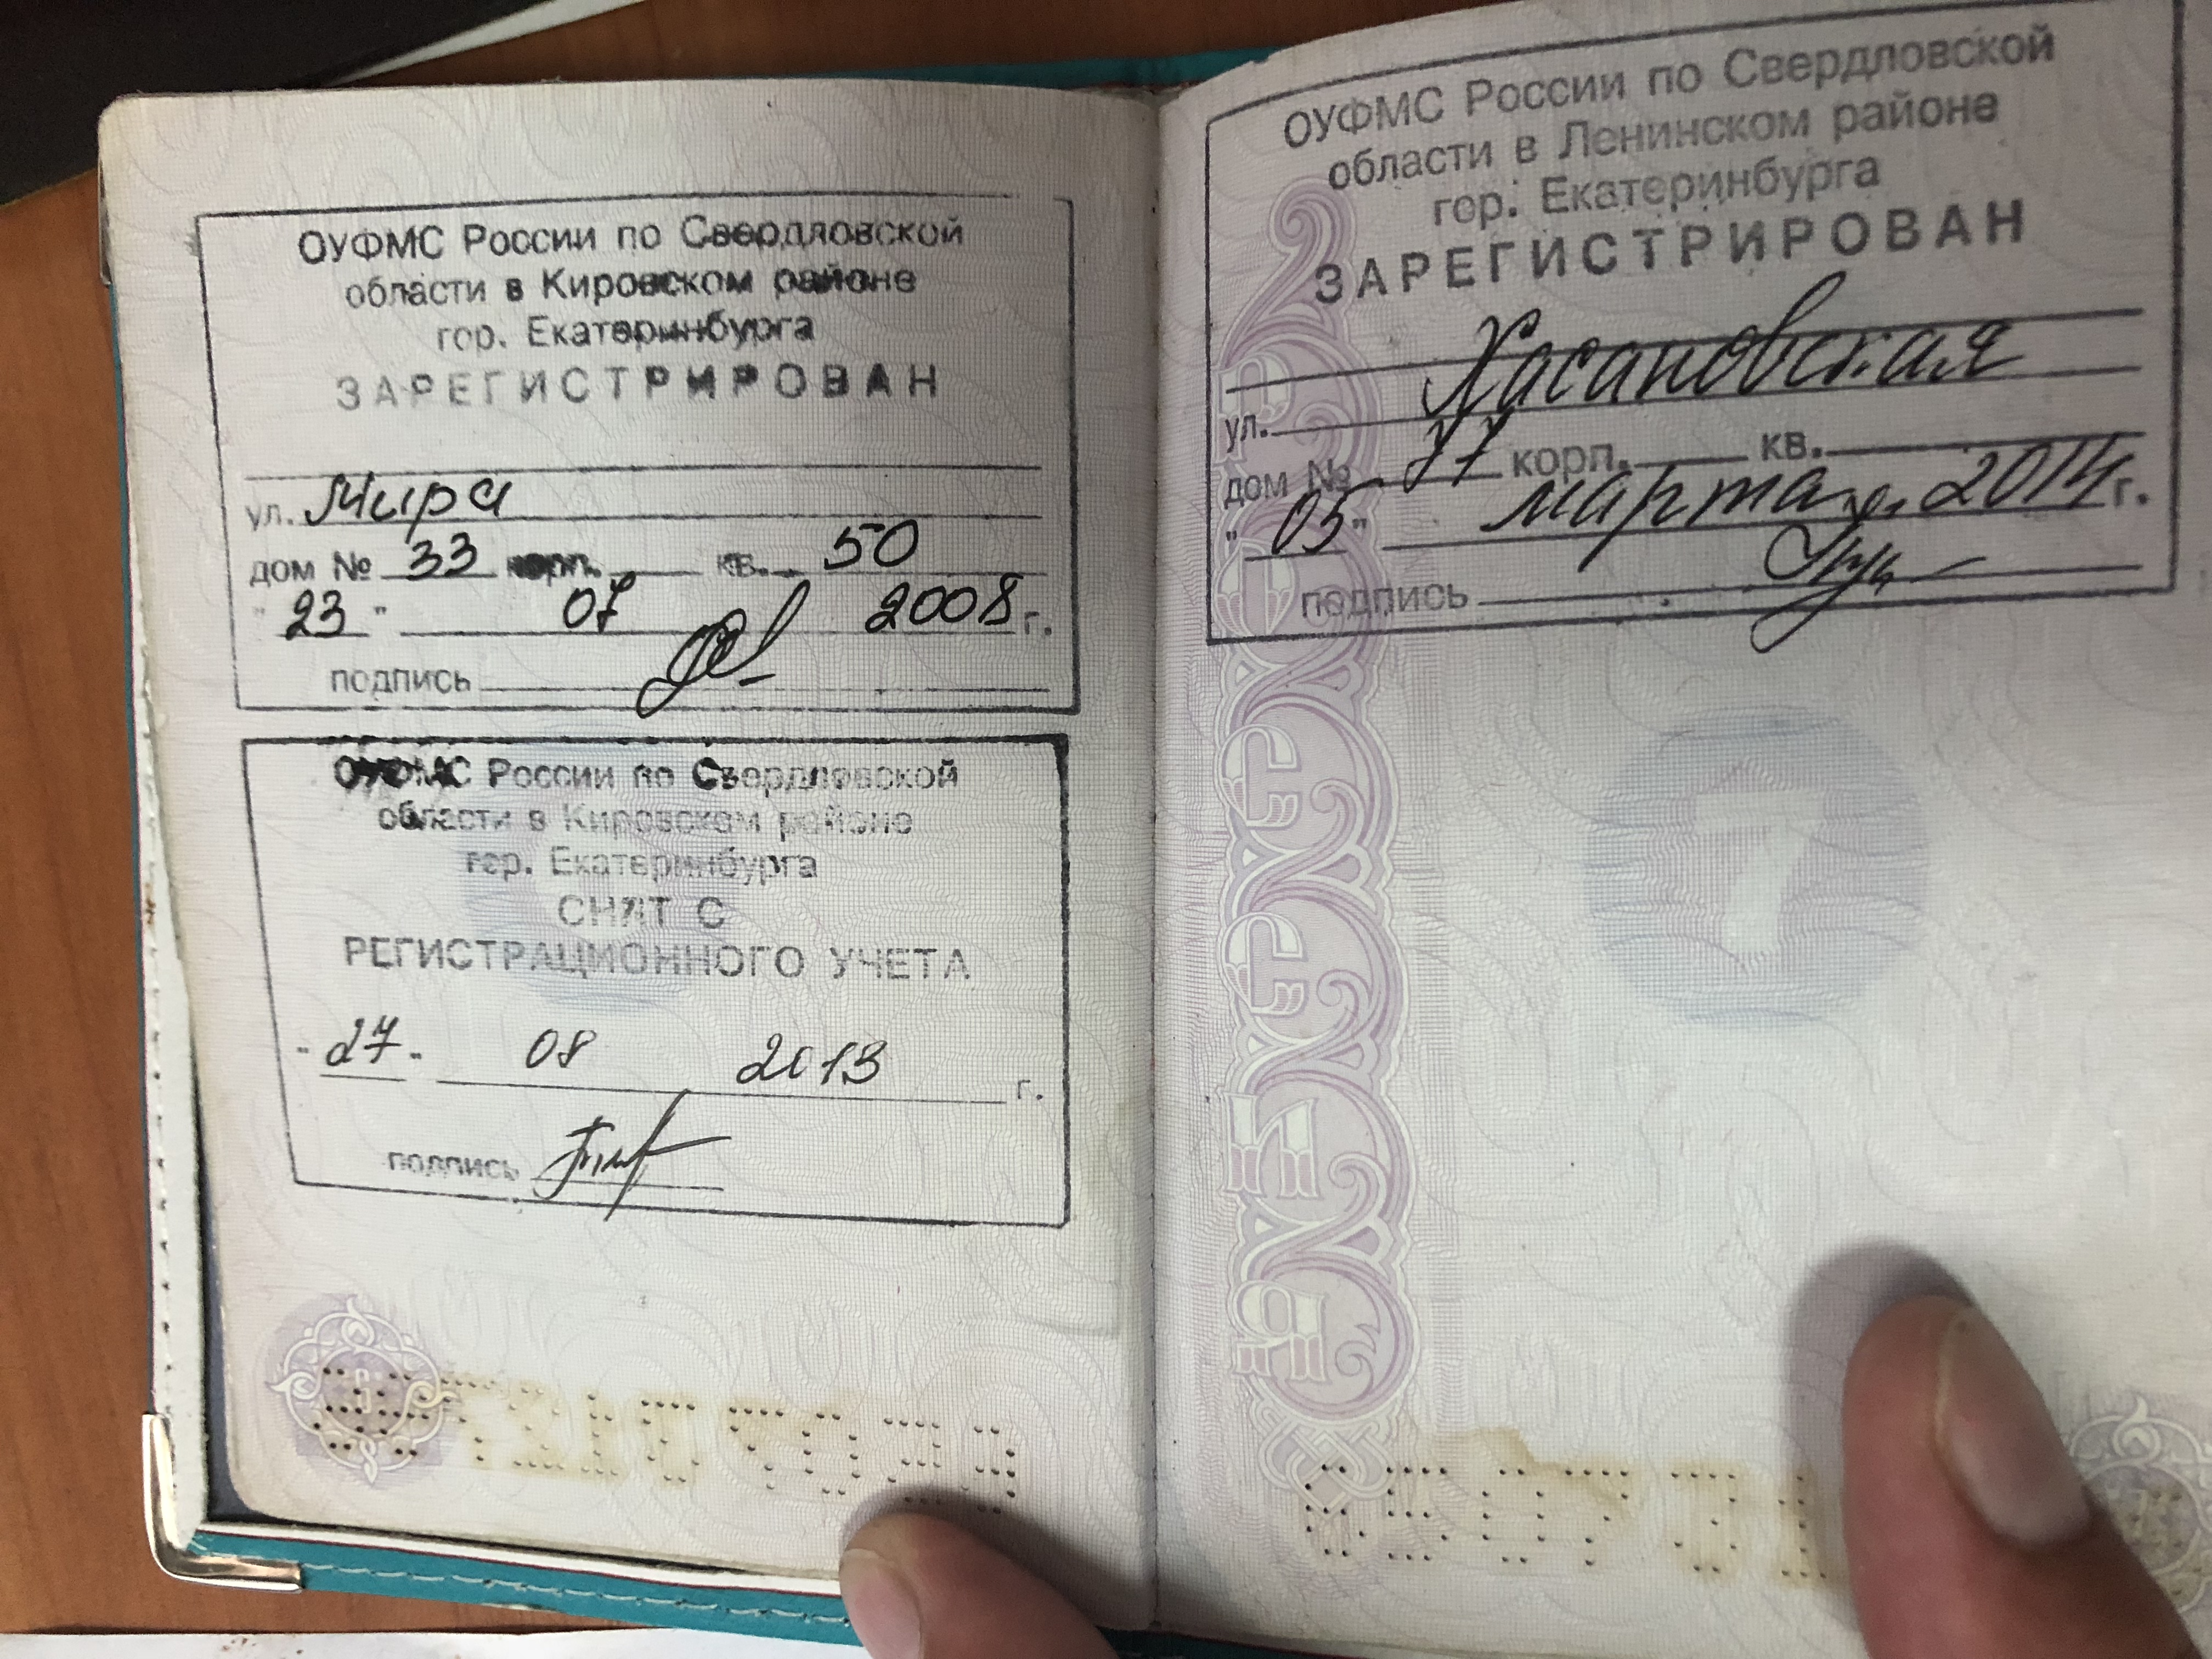 ОУФМС России по Свердловской
области в Кировском районе
гор. Екатеринбурга
ЗАРЕГИСТРИРОВАН
ул. Мира
дом № 33 корп. кв. 50
" 23 " 07 2008 г.
подпись
ОУФМС России по Свердловской
области в Кировском районе
гор. Екатеринбурга
СНЯТ С
РЕГИСТРАЦИОННОГО УЧЕТА
08 2013 г.
подпись
ОУФМС России по Свердловской
области в Ленинском районе
гор. Екатеринбурга
ЗАРЕГИСТРИРОВАН
ул.
дом № корп. кв.
" 05 " марта 2014 г.
подпись